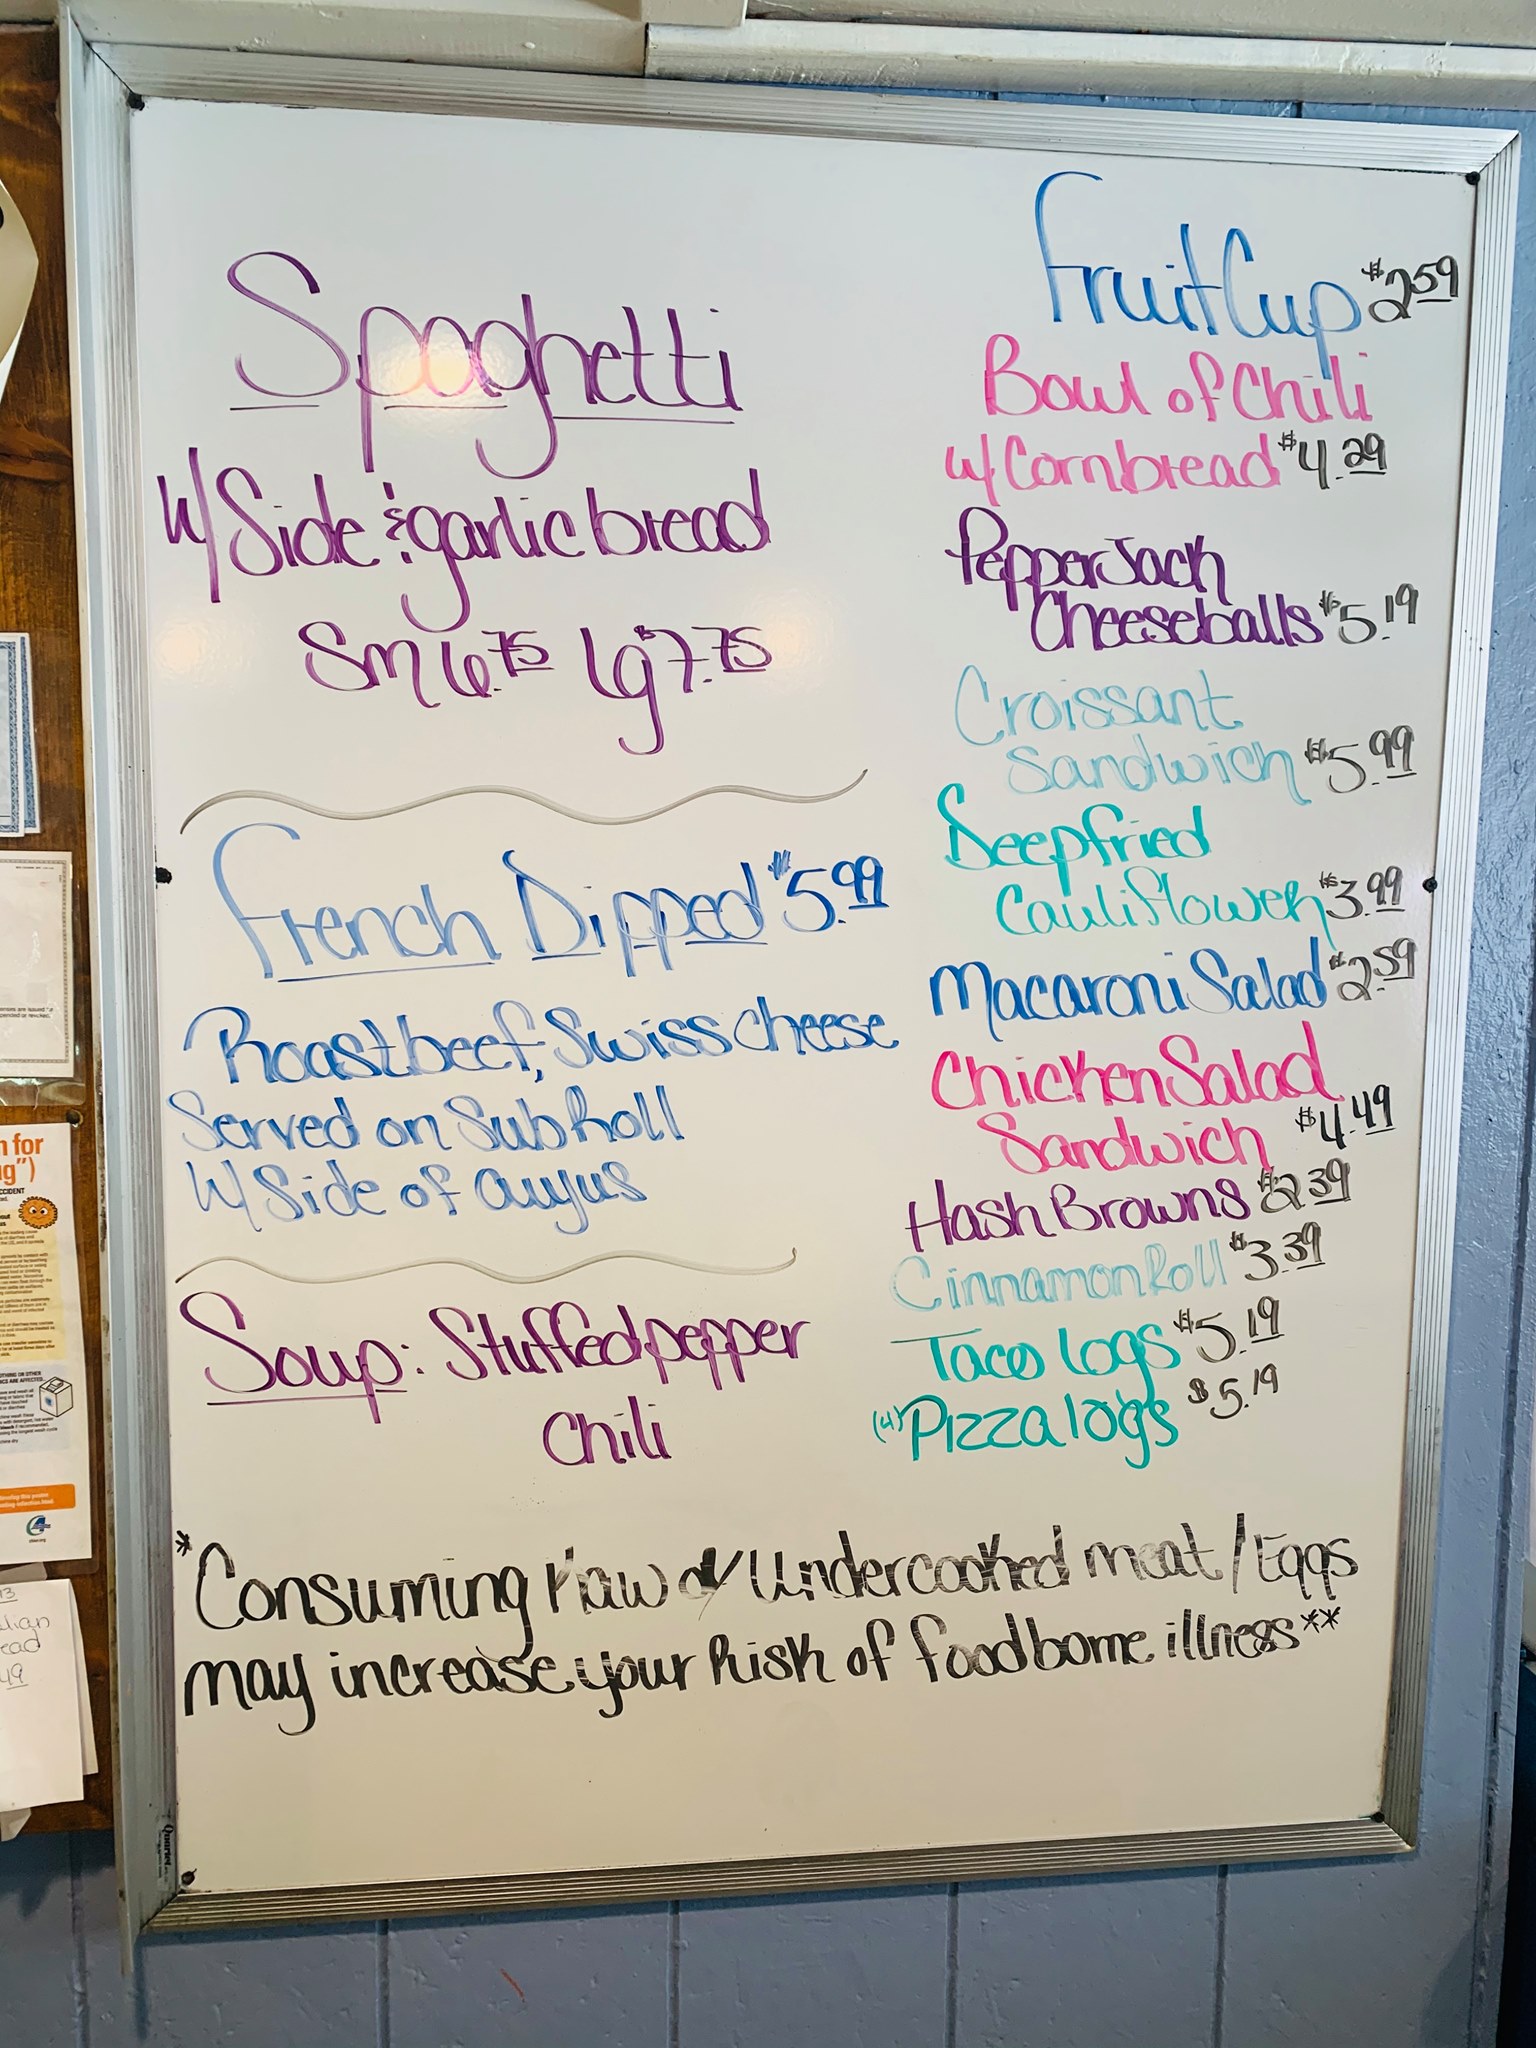 Spaghetti
W/ Side & garlic bread
Sm 6.75 lg $7.75
French Dipped $5.99
Roastbeef, Swiss cheese
Served on Sub Roll
W/ Side of auyus
Soup: Stuffed pepper
Chili
Fruit Cup $2.59
Bowl of Chili
w/ Cornbread $4.29
Pepper Jack
Cheeseballs $5.19
Croissant
Sandwich $5.99
Deep fried
Cauliflower $3.99
Macaroni Salad $2.59
Chicken Salad
Sandwich $4.49
Hash Browns $2.39
Cinnamon Roll $3.39
Taco logs $5.19
(4) Pizza logs $5.19
*Consuming Raw or Undercooked meat / Eggs
may increase your Risk of foodborne illness**
Quartet
n for
g")
CCIDENT